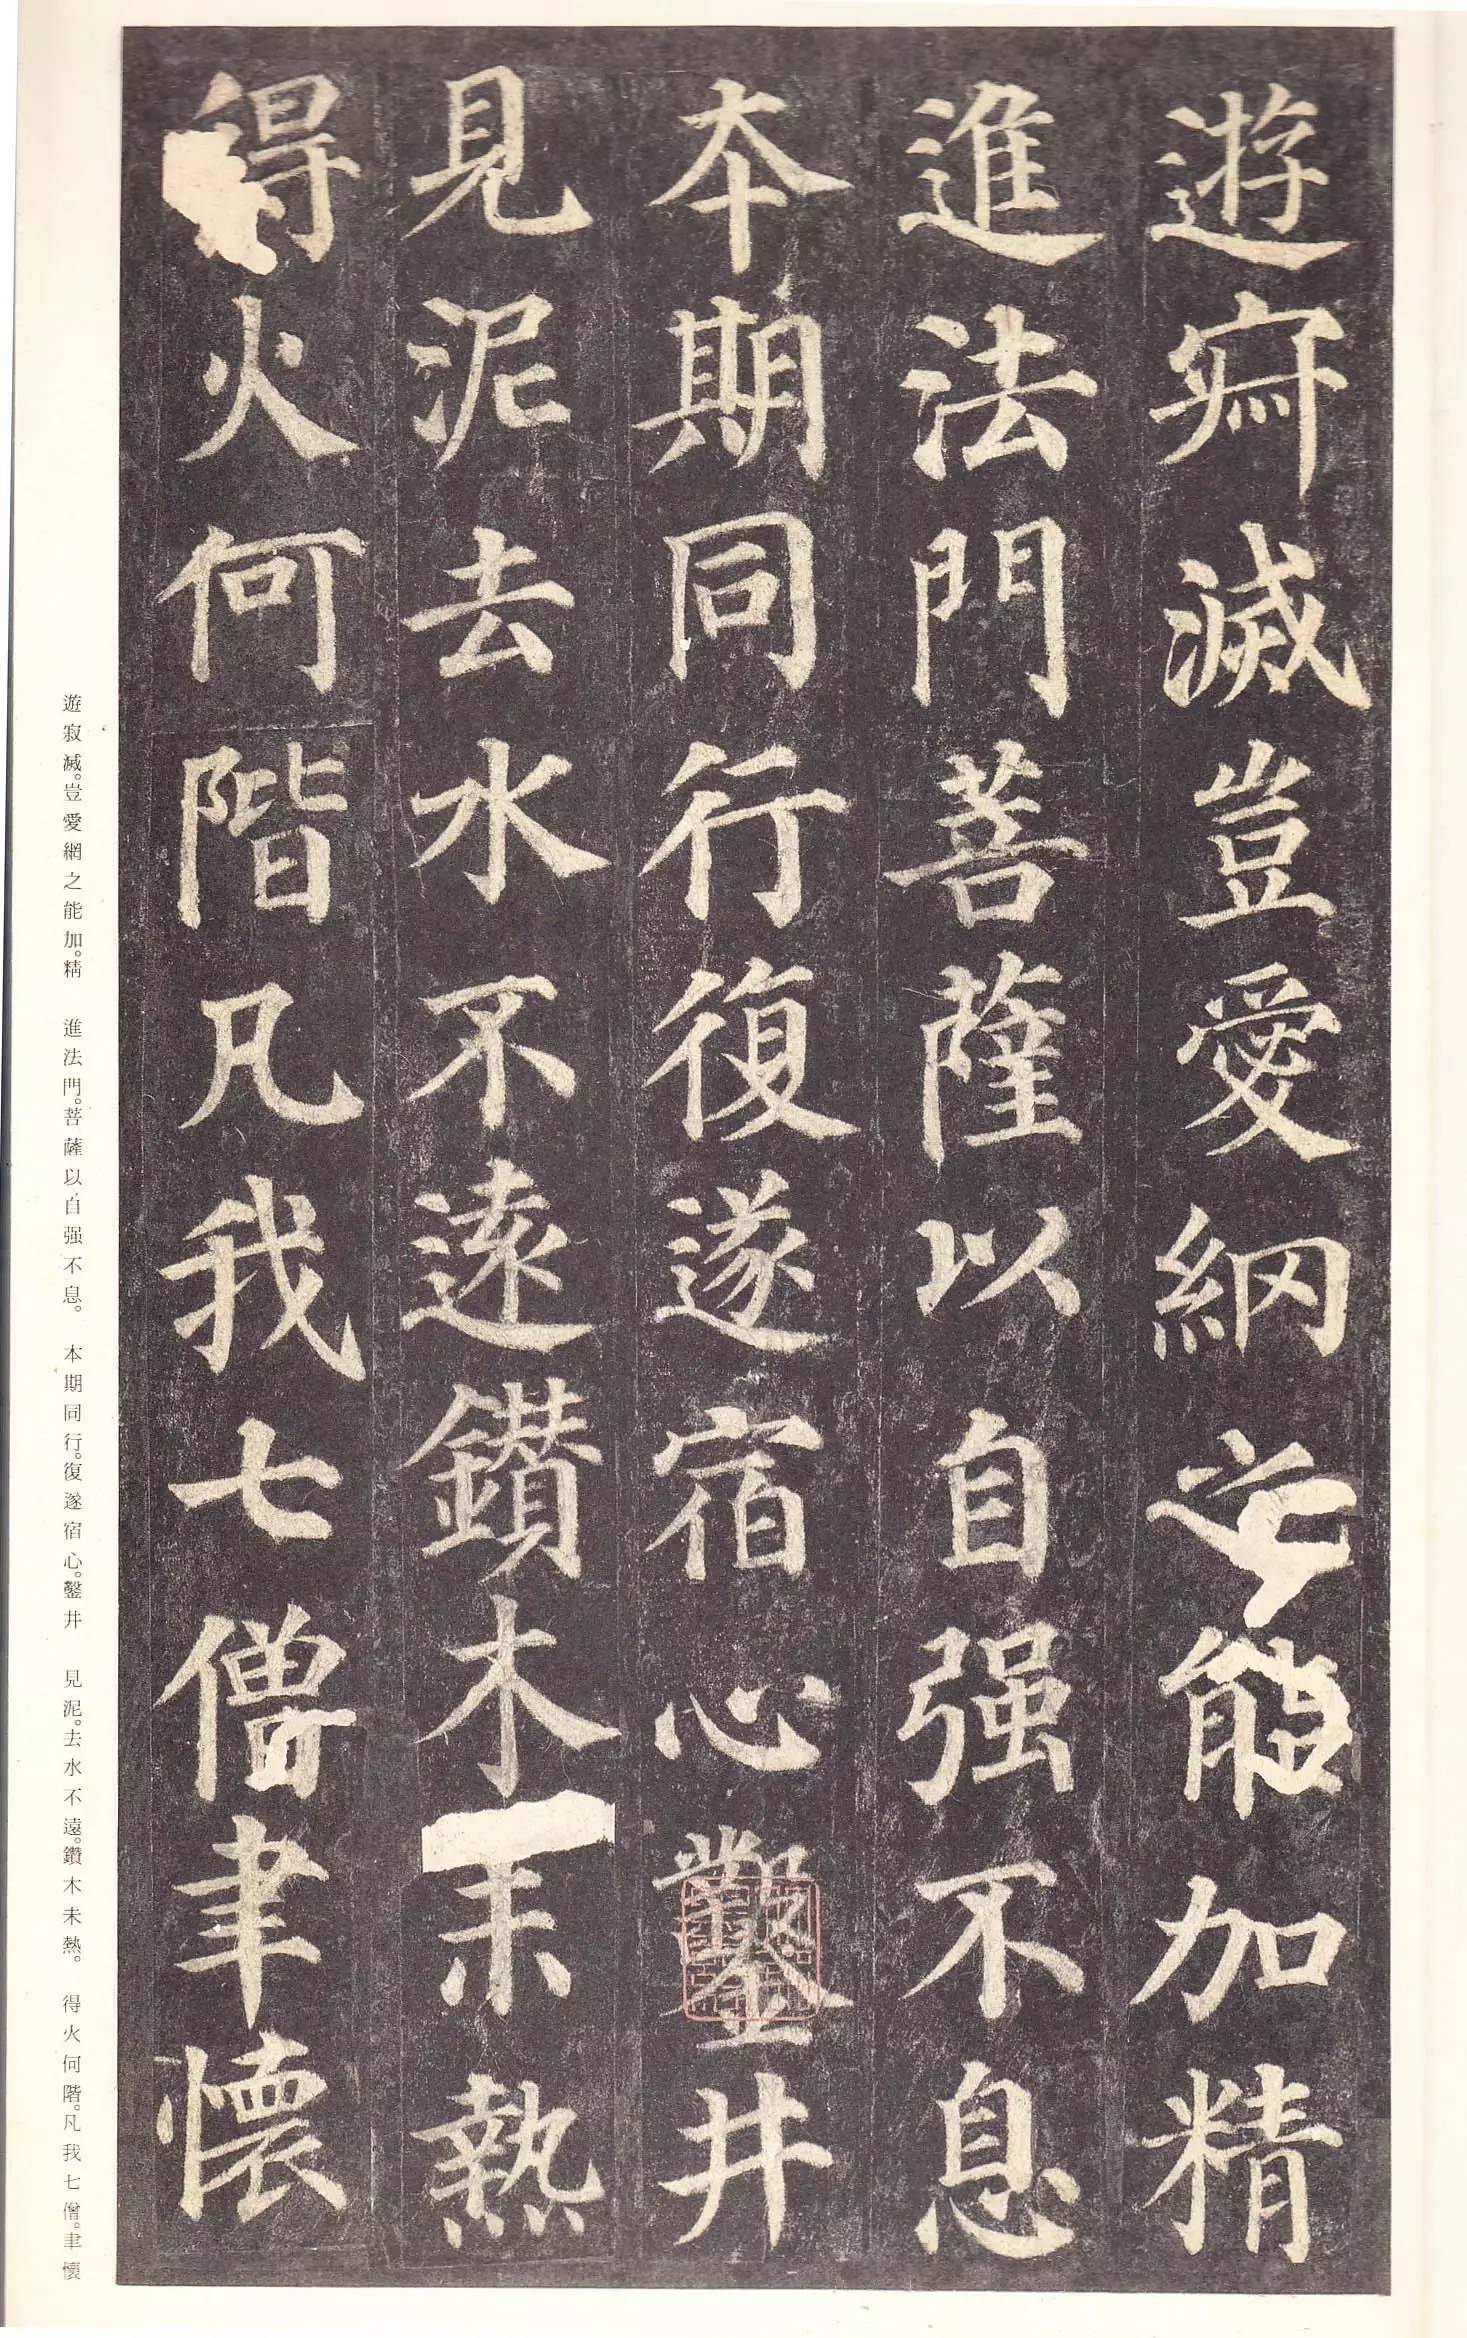 遊寂滅豈愛網之能加精
進法門菩薩以自强不息
本期同行復遂宿心鑿井
見泥去水不遠鑽木未熱
得火何階凡我七僧聿懷
遊寂滅。豈愛網之能加。精 進法門。菩薩以自强不息。 本期同行。復遂宿心。鑿井 見泥。去水不遠。鑽木未熱。 得火何階。凡我七僧。聿懷